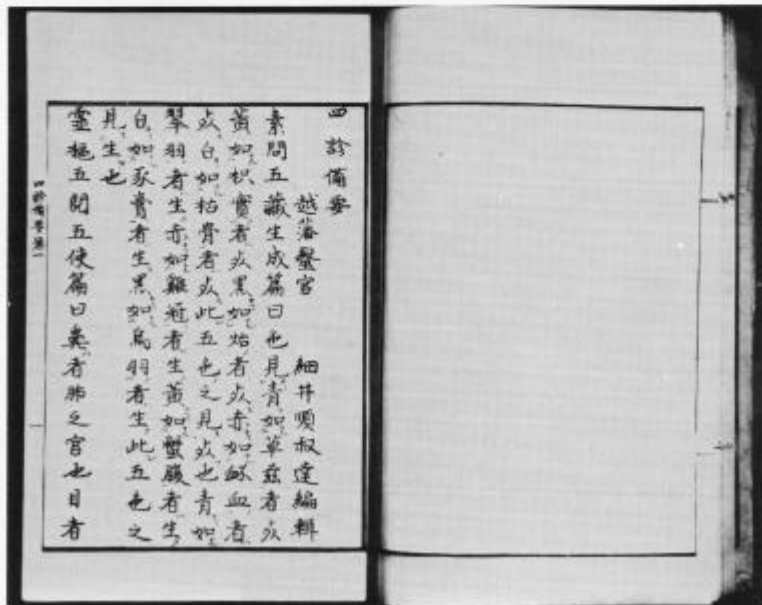 四診備要
越藩醫官 細井順叔達編輯
素問五藏生成篇曰色見青如草玆者死
黃如枳實者死黑如炲者死赤如衃血者
死白如枯骨者死此五色之見死也青如
翠羽者生赤如雞冠者生黃如蟹腹者生
白如豕膏者生黑如烏羽者生此五色之
見生也
靈樞五閱五使篇曰鼻者肺之官也目者
四診備要卷一
一